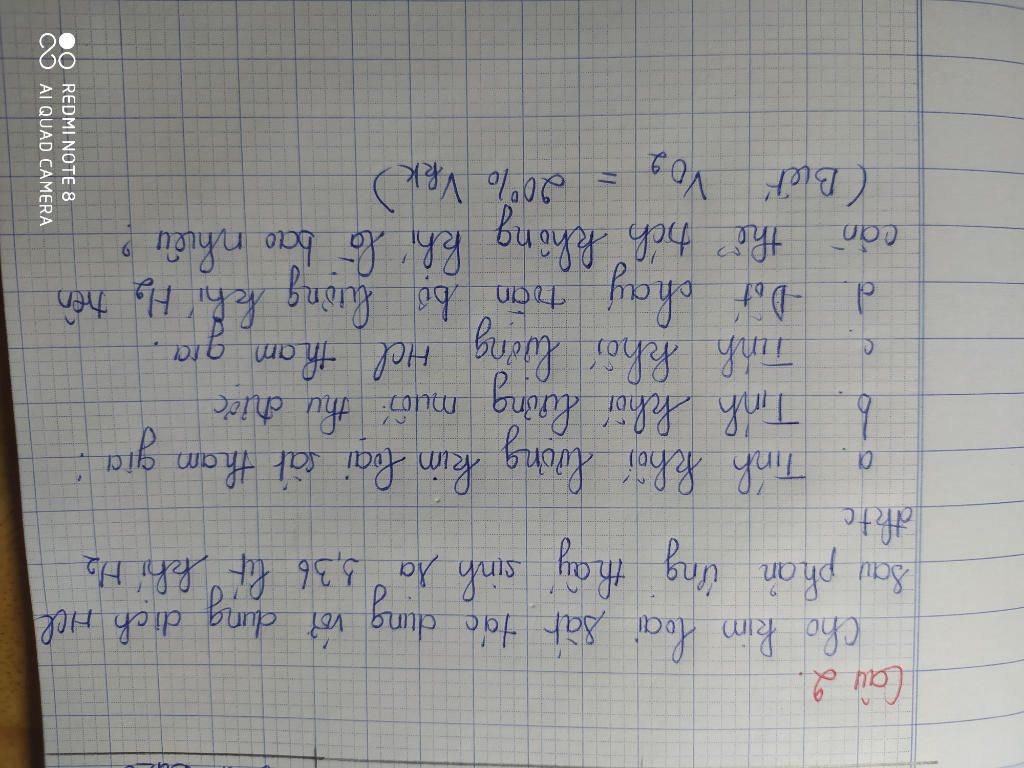 Câu 2.
Cho kim loại sắt tác dụng với dung dịch HCl
sau phản ứng thấy sinh ra 3,36 lít khí H2
đktc
a Tính khối lượng kim loại sắt tham gia.
b. Tính khối lượng muối thu được
c. Tính khối lượng HCl tham gia.
d. Đốt cháy toàn bộ lượng khí H2 trên
cần thể tích không khí là bao nhiêu?
(Biết VO2 = 20% VKK)
REDMI NOTE 8
AI QUAD CAMERA